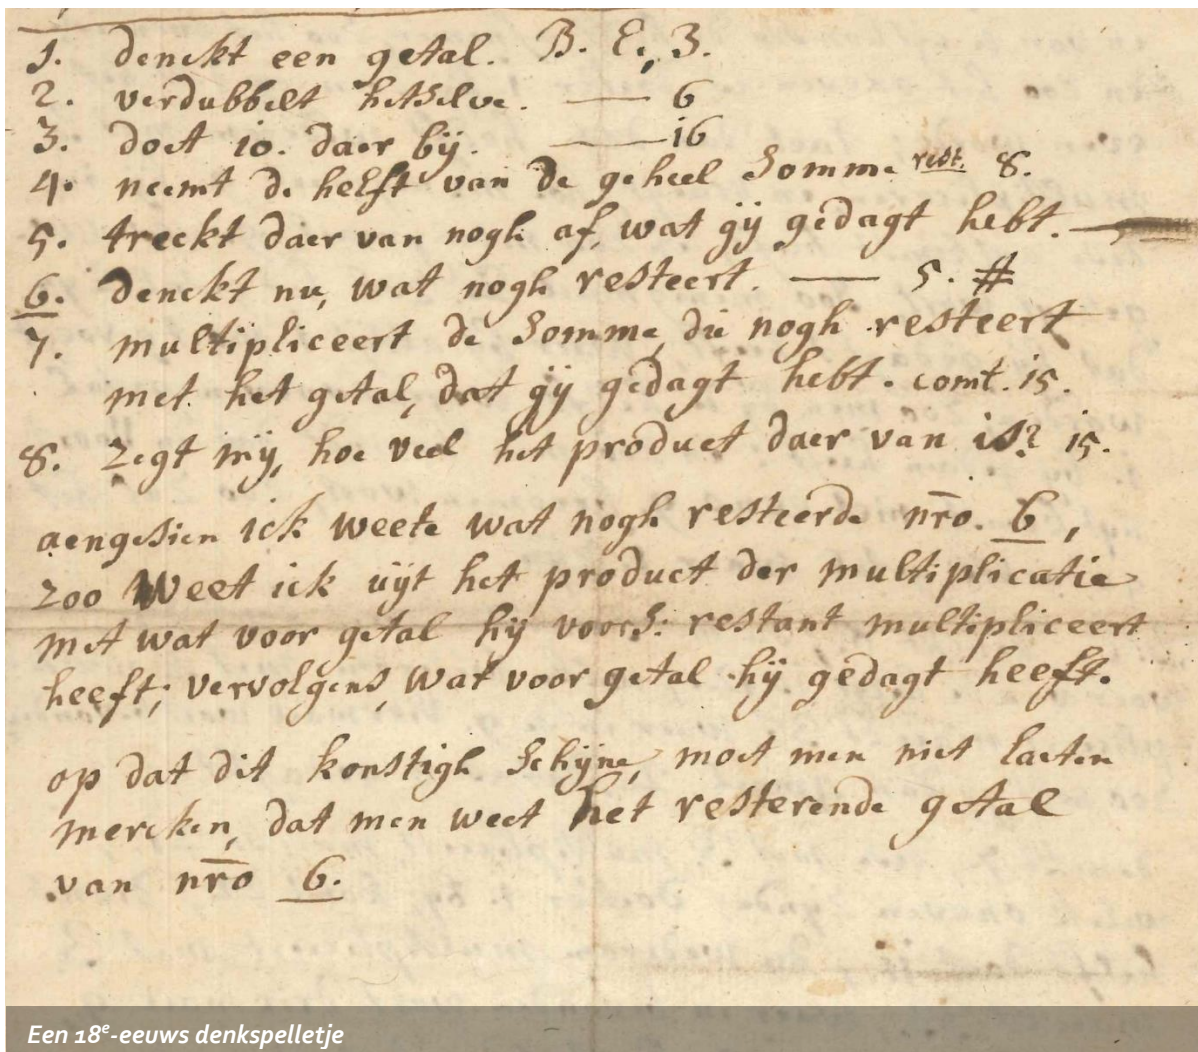 1. denckt een getal. B. E, 3.
2. verdubbelt hetselve. — 6
3. doet 10. daer bij. — 16
4. neemt de helft van de geheel somme rest. 8.
5. treckt daer van nogh af, wat gij gedagt hebt. —
6. denckt nu, wat nogh resteert. — 5. #
7. multipliceert de somme, die nogh resteert
met het getal, dat gij gedagt hebt. comt. 15.
8. Zegt mij, hoe veel het product daer van is? 15.
aengesien ick weete wat nogh resteerde nro. 6,
zoo weet ick uijt het product der multiplicatie
met wat voor getal hij voors: restant multipliceert
heeft; vervolgens, wat voor getal hij gedagt heeft.
op dat dit konstigh schijne, moet men niet laeten
mercken, dat men weet het resterende getal
van nro 6.
Een 18e-eeuws denkspelletje